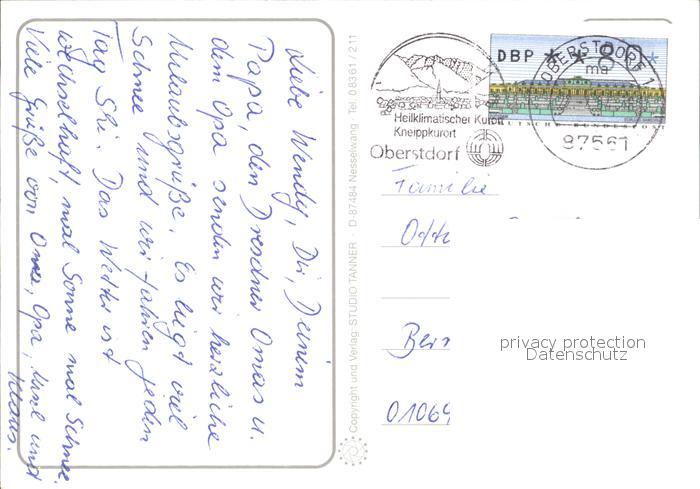 Liebe Wendy, Dir, Deinem
Papa, den Dresdner Omas u.
dem Opa senden wir herzliche
Urlaubsgrüße. Es liegt viel
Schnee und wir fahren jeden
Tag Ski. Das Wetter ist
wechselhaft, mal Sonne mal Schnee.
Viele Grüße von Oma, Opa, und
Klaus.
Copyright und Verlag: STUDIO TANNER · D-87484 Nesselwang · Tel. 08361/211
DBP **80*
DEUTSCHE BUNDESPOST
OBERSTDORF 1
ma
87561
Heilklimatischer Kurort
Kneippkurort
Oberstdorf
Familie
Otto
01069
privacy protection
Datenschutz